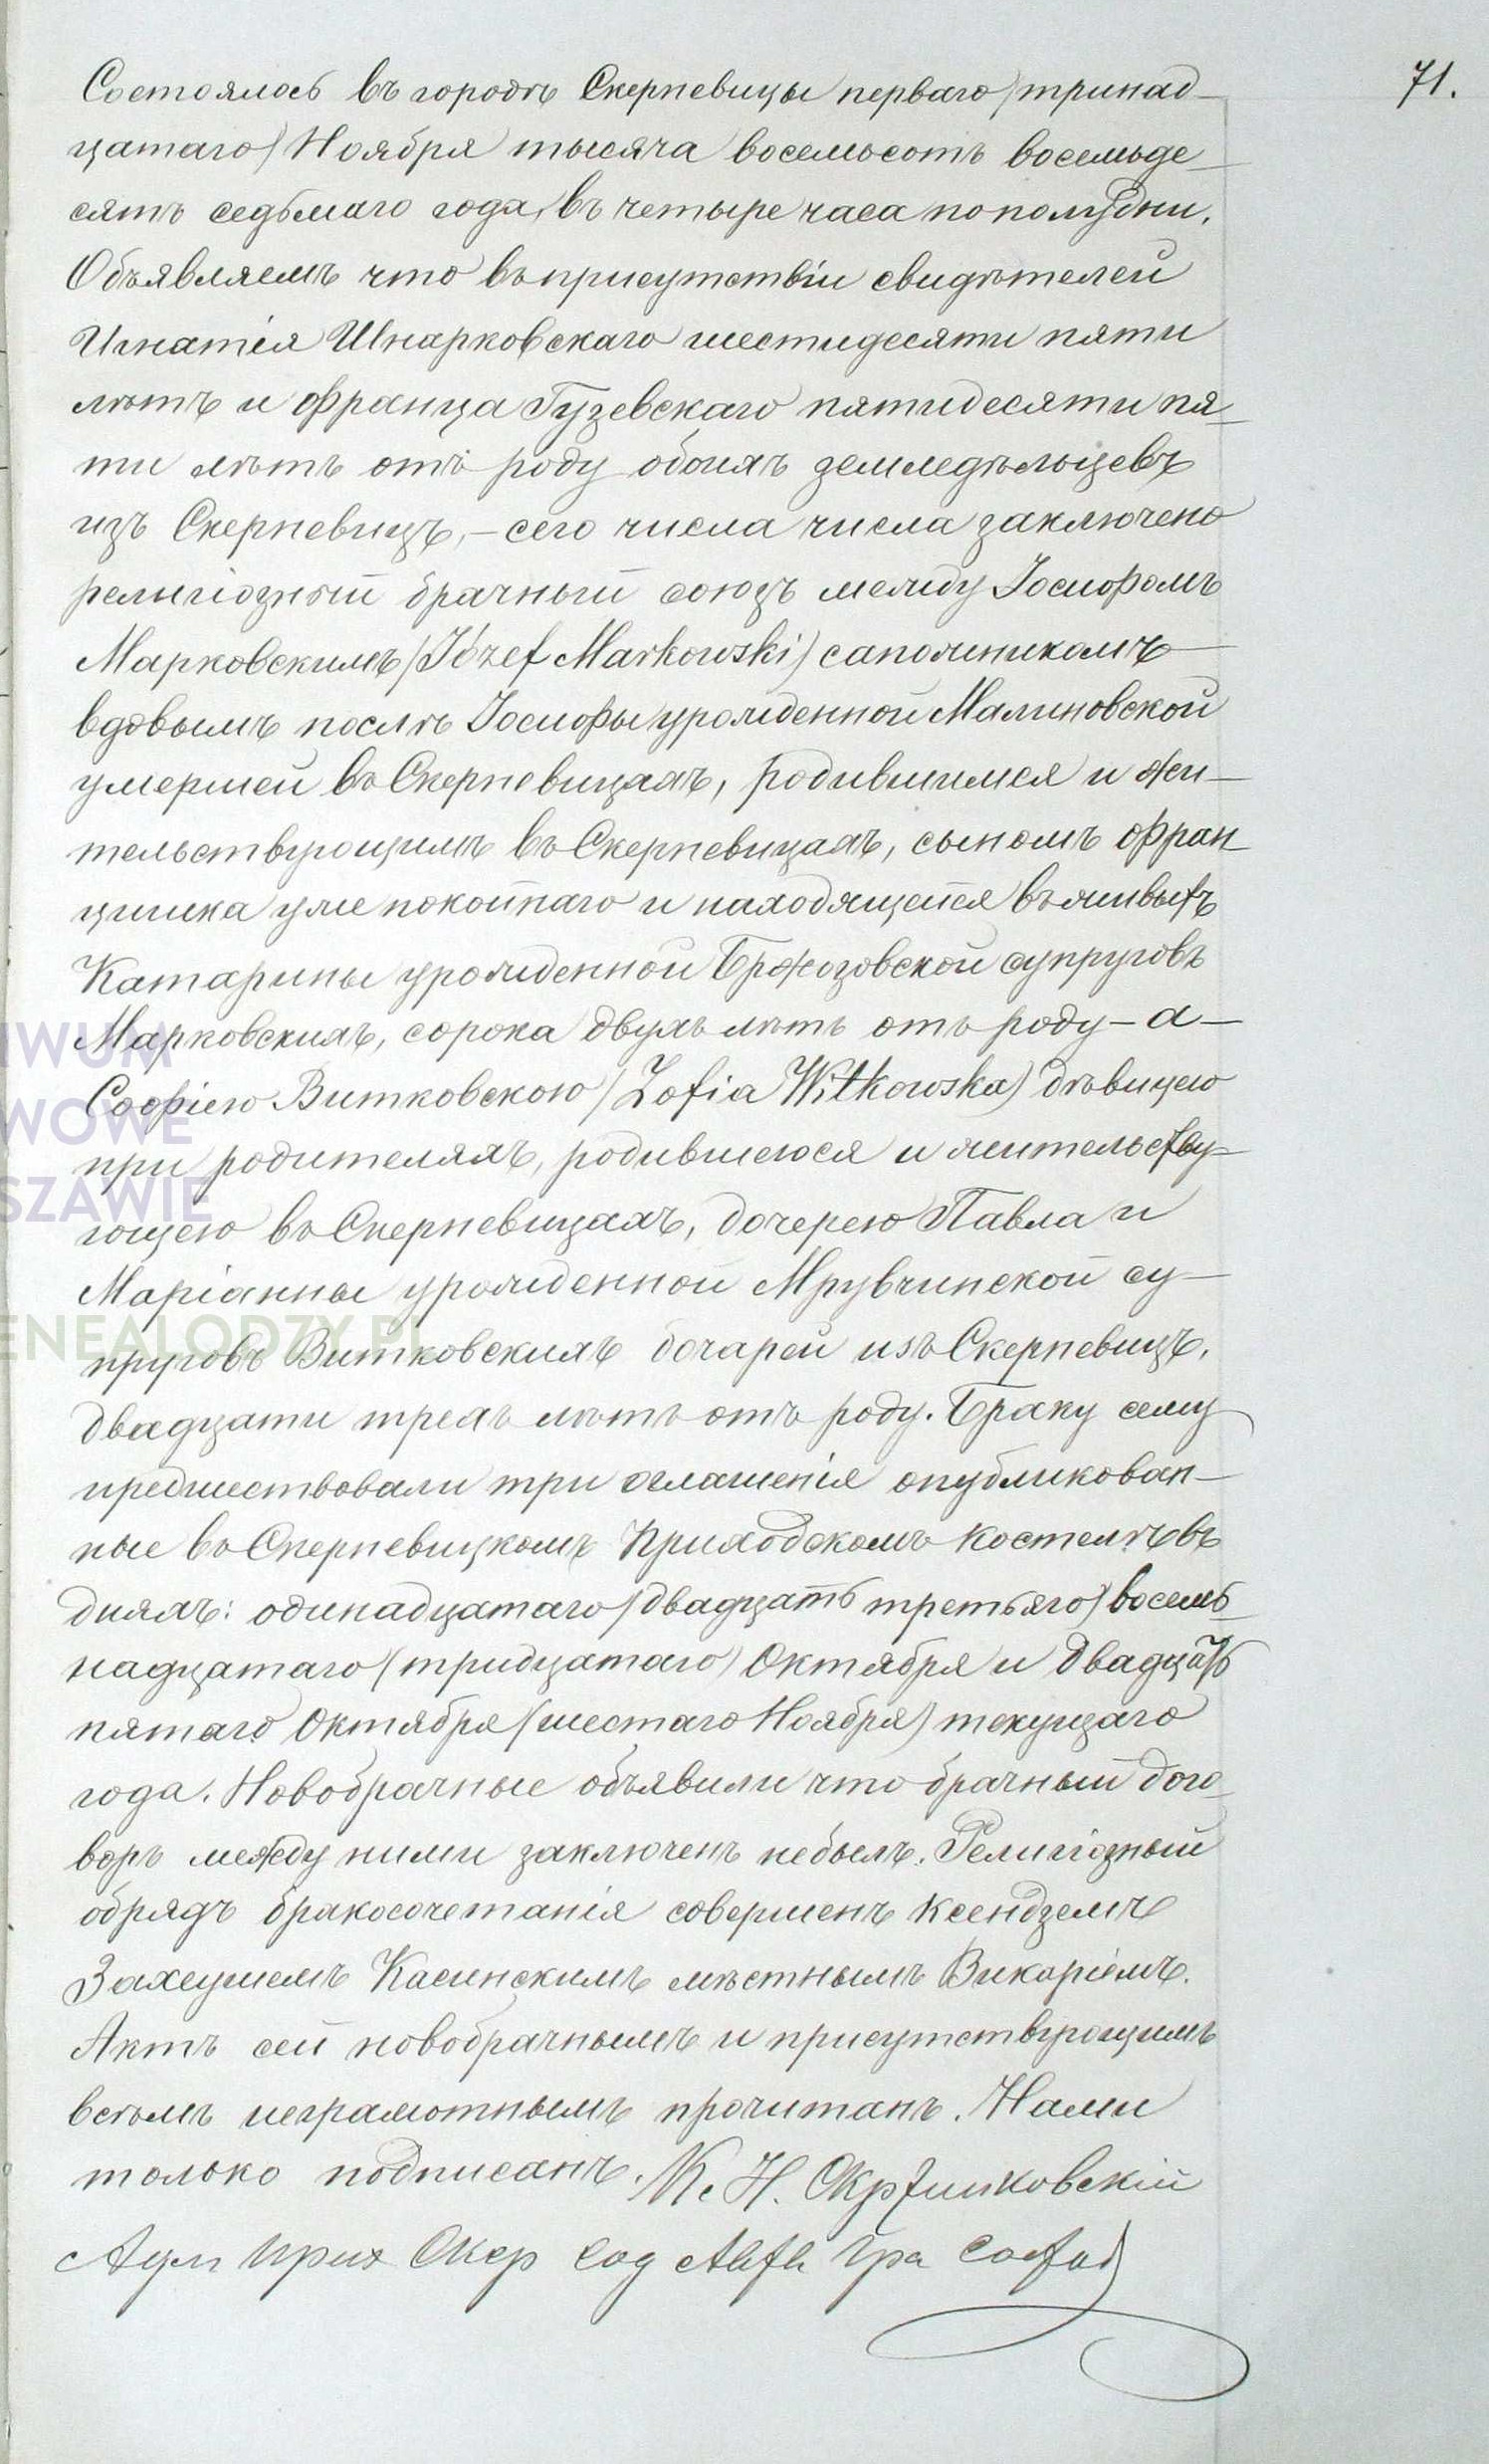 71.
Состоялось въ городѣ Скерневицы перваго (тринад-
цатаго) Ноября тысяча восемьсотъ восемьде-
сятъ седьмаго года, въ четыре часа пополудни.
Объявляемъ что въ присутствіи свидѣтелей
Игнатія Шнарковскаго шестидесяти пяти
лѣтъ и Франца Гузевскаго пятидесяти пя-
ти лѣтъ отъ роду обоихъ земледѣльцевъ
изъ Скерневицъ, – сего числа числа заключено
религіозный брачный союзъ между Іосифомъ
Марковскимъ (Józef Markowski) сапожникомъ
вдовымъ послѣ Іосифы урожденной Малиновской
умершей въ Скерневицахъ, родившимся и жи-
тельствующимъ въ Скерневицахъ, сыномъ Фран-
цишка уже покойнаго и находящейся въ живыхъ
Катарины урожденной Бржозовской супруговъ
Марковскихъ, сорока двухъ лѣтъ отъ роду – а –
Софіею Витковскою (Zofia Witkowska) дѣвицею
при родителяхъ, родившеюся и жительству-
ющею въ Скерневицахъ, дочерею Павла и
Маріанны урожденной Мрувчинской су-
пруговъ Витковскихъ бочарей изъ Скерневицъ,
двадцати трехъ лѣтъ отъ роду. Браку сему
предшествовали три оглашенія опубликован-
ные въ Скерневицкомъ Приходскомъ Костелѣ въ
дняхъ: одинадцатаго (двадцать третьяго) восемь-
надцатаго (тридцатаго) Октября и двадцать
пятаго Октября (шестаго Ноября) текущаго
года. Новобрачные объявили что брачный дого-
воръ между ними заключенъ небылъ. Религіозный
обрядъ бракосочетанія совершенъ Ксендземъ
Захеушемъ Касинскимъ мѣстнымъ Викаріемъ.
Актъ сей новобрачнымъ и присутствующимъ
всѣмъ неграмотнымъ прочитанъ. Нами
только подписанъ. К. Н.
Прих Скер Сод
ARCHIWUM
PAŃSTWOWE
W WARSZAWIE
GENEALODZY.PL